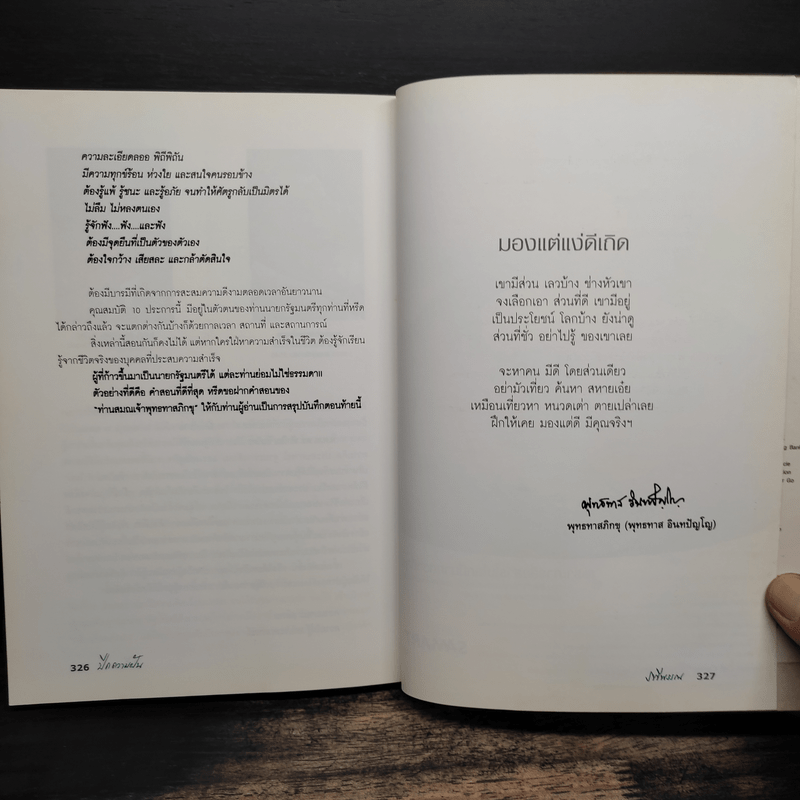 ความละเอียดลออ พิถีพิถัน
มีความทุกข์ร้อน ห่วงใย และสนใจคนรอบข้าง
ต้องรู้แพ้ รู้ชนะ และรู้อภัย จนทำให้ศัตรูกลับเป็นมิตรได้
ไม่ลืม ไม่หลงตนเอง
รู้จักฟัง....ฟัง....และฟัง
ต้องมีจุดยืนที่เป็นตัวของตัวเอง
ต้องใจกว้าง เสียสละ และกล้าตัดสินใจ
ต้องมีบารมีที่เกิดจากการสะสมความดีงามตลอดเวลาอันยาวนาน
คุณสมบัติ 10 ประการนี้ มีอยู่ในตัวตนของท่านนายกรัฐมนตรีทุกท่านที่หรีด
ได้กล่าวถึงแล้ว จะแตกต่างกันบ้างก็ด้วยกาลเวลา สถานที่ และสถานการณ์
สิ่งเหล่านี้สอนกันก็คงไม่ได้ แต่หากใครใฝ่หาความสำเร็จในชีวิต ต้องรู้จักเรียน
รู้จากชีวิตจริงของบุคคลที่ประสบความสำเร็จ
ผู้ที่ก้าวขึ้นมาเป็นนายกรัฐมนตรีได้ แต่ละท่านย่อมไม่ใช่ธรรมดา!!
ตัวอย่างที่ดีคือ คำสอนที่ดีที่สุด หรีดขอฝากคำสอนของ
"ท่านสมณเจ้าพุทธทาสภิกขุ" ให้กับท่านผู้อ่านเป็นการสรุปบันทึกตอนท้ายนี้
326
มองแต่แง่ดีเถิด
เขามีส่วน เลวบ้าง ช่างหัวเขา
จงเลือกเอา ส่วนที่ดี เขามีอยู่
เป็นประโยชน์ โลกบ้าง ยังน่าดู
ส่วนที่ชั่ว อย่าไปรู้ ของเขาเลย
จะหาคน มีดี โดยส่วนเดียว
อย่ามัวเที่ยว ค้นหา สหายเอ๋ย
เหมือนเที่ยวหา หนวดเต่า ตายเปล่าเลย
ฝึกให้เคย มองแต่ดี มีคุณจริงฯ
พุทธทาส อินทปัญโญ
พุทธทาสภิกขุ (พุทธทาส อินทปัญโญ)
327